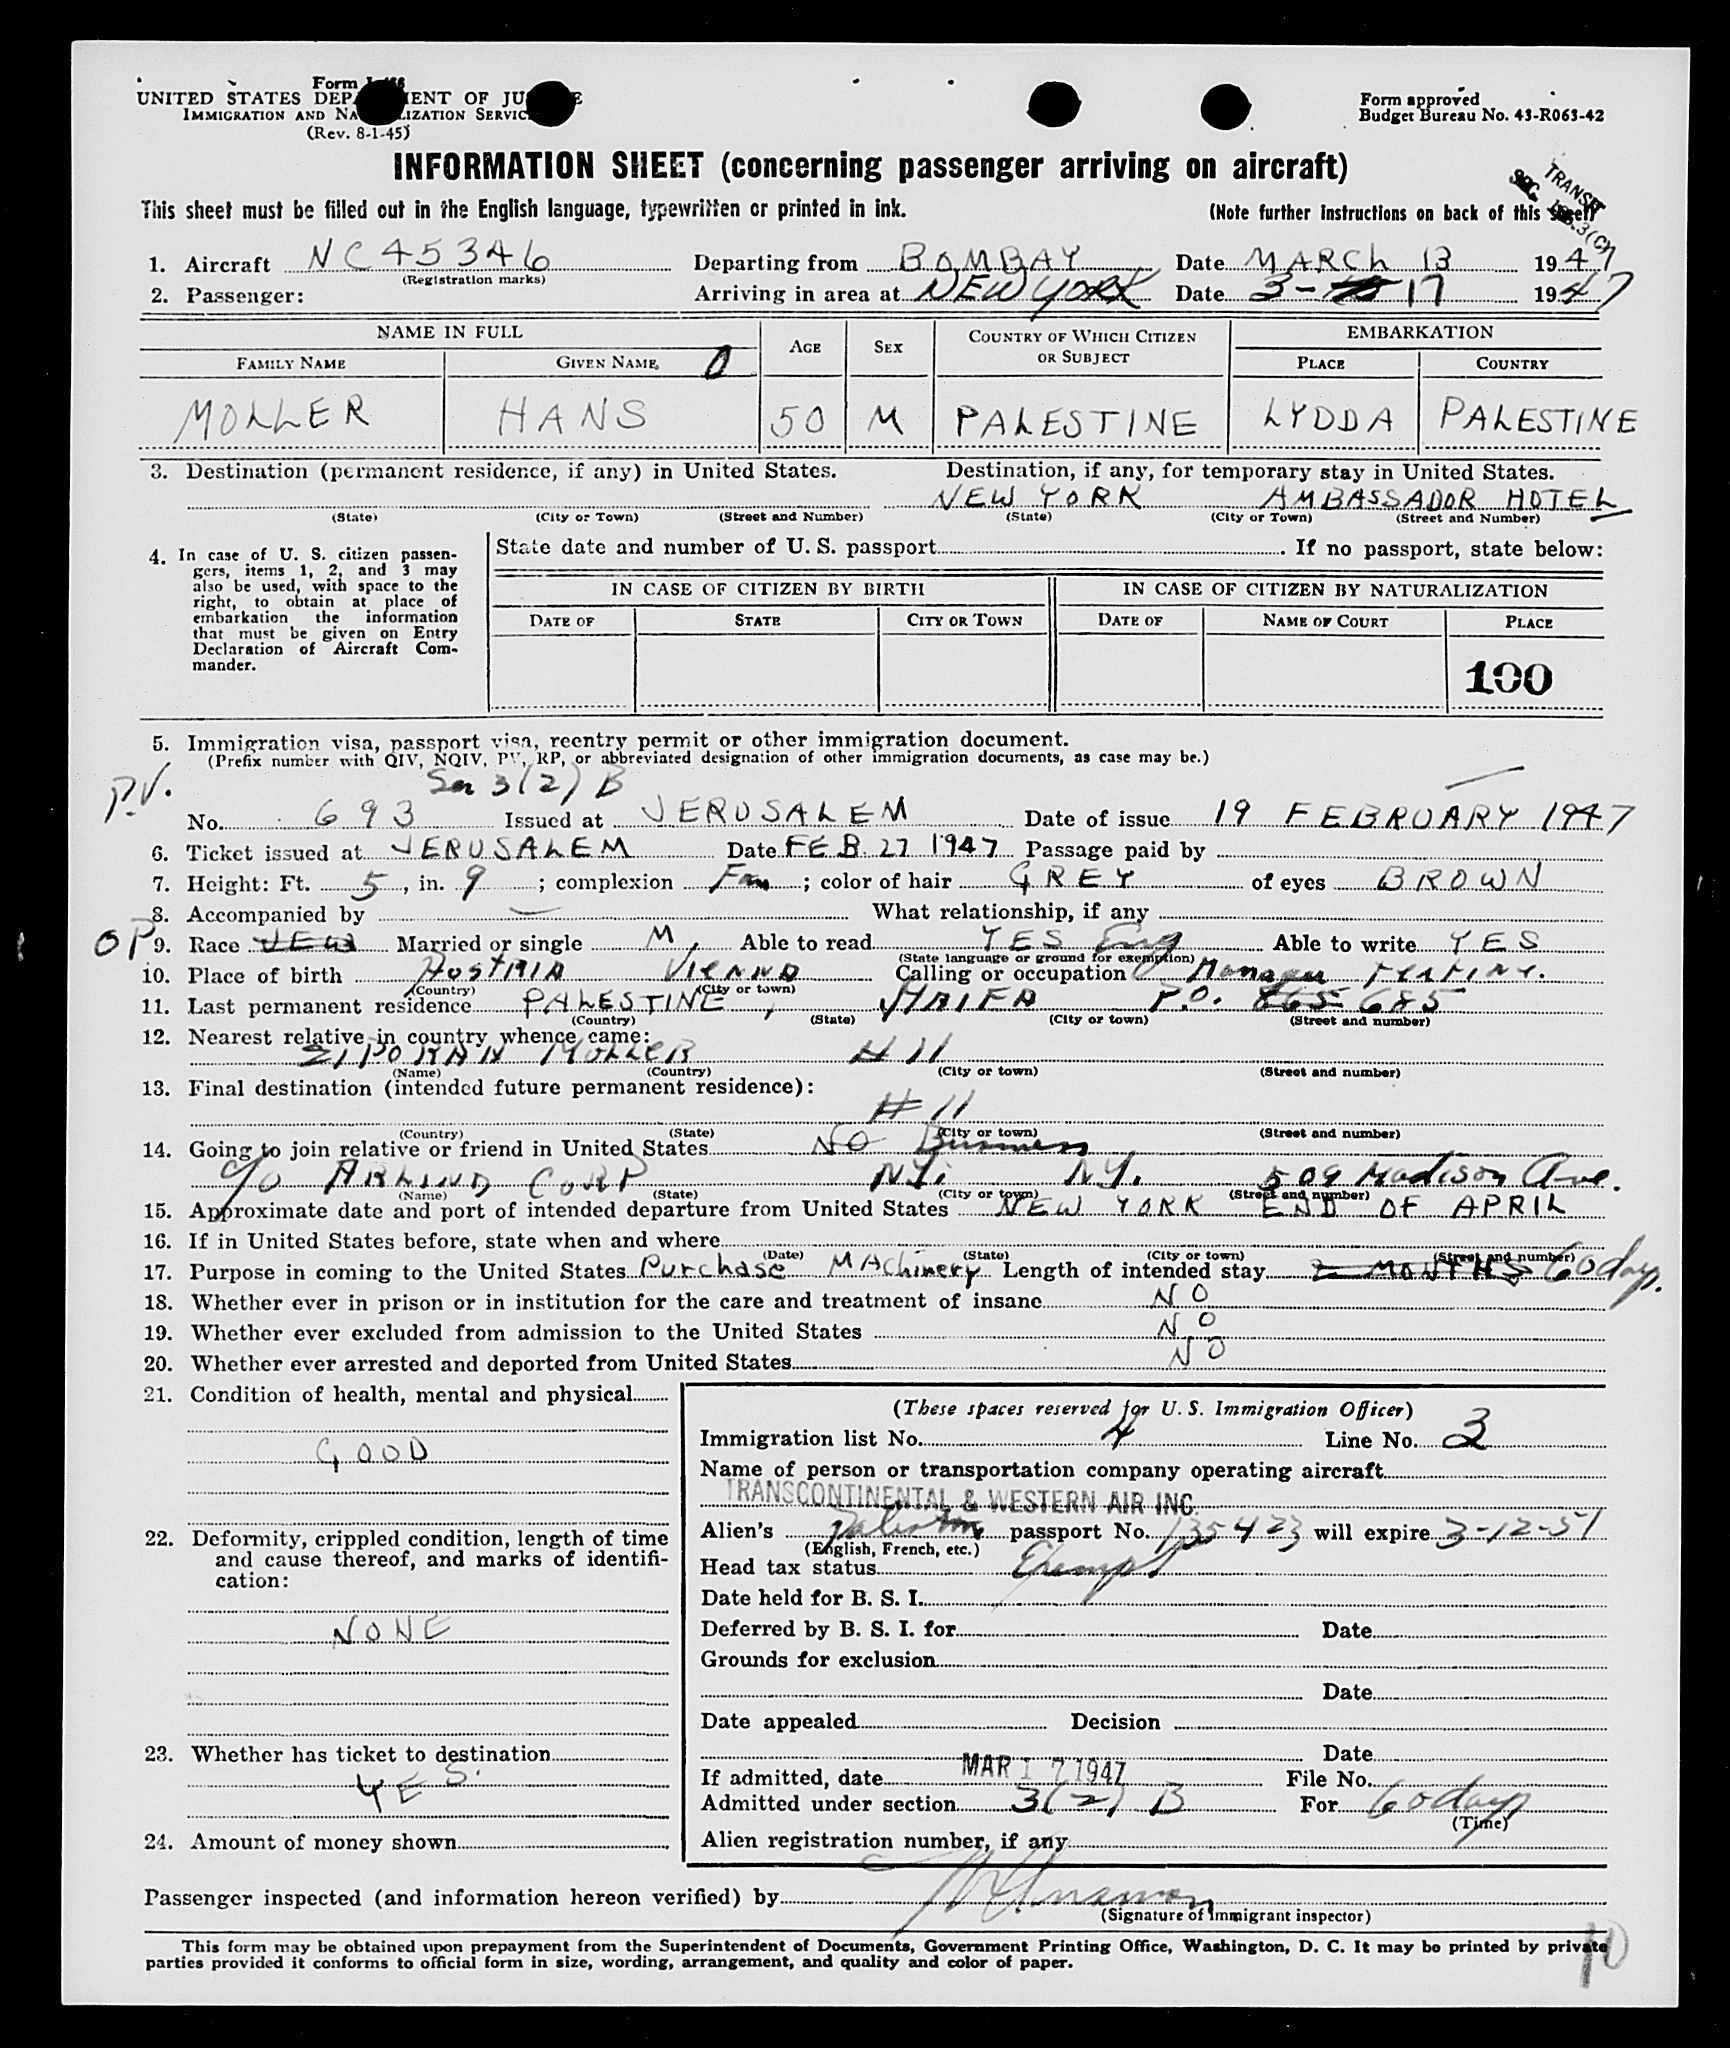 Form I-466
UNITED STATES DEPARTMENT OF JUSTICE
IMMIGRATION AND NATURALIZATION SERVICE
(Rev. 8-1-45)
Form approved
Budget Bureau No. 43-R063-42
INFORMATION SHEET (concerning passenger arriving on aircraft)
TRANSIT
SEC. 3(C)
This sheet must be filled out in the English language, typewritten or printed in ink.
(Note further instructions on back of this sheet)
1. Aircraft NC45346 Departing from BOMBAY Date MARCH 13 1947
(Registration marks)
2. Passenger: Arriving in area at NEW YORK Date 3-17 1947
NAME IN FULL AGE SEX COUNTRY OF WHICH CITIZEN OR SUBJECT EMBARKATION
FAMILY NAME GIVEN NAME PLACE COUNTRY
MOLLER HANS 50 M PALESTINE LYDDA PALESTINE
3. Destination (permanent residence, if any) in United States. Destination, if any, for temporary stay in United States.
NEW YORK AMBASSADOR HOTEL
(State) (City or Town) (Street and Number) (State) (City or Town) (Street and Number)
4. In case of U. S. citizen passengers, items 1, 2, and 3 may also be used, with space to the right, to obtain at place of embarkation the information that must be given on Entry Declaration of Aircraft Commander.
State date and number of U. S. passport. If no passport, state below:
IN CASE OF CITIZEN BY BIRTH IN CASE OF CITIZEN BY NATURALIZATION
DATE OF STATE CITY OR TOWN DATE OF NAME OF COURT PLACE
100
5. Immigration visa, passport visa, reentry permit or other immigration document.
(Prefix number with QIV, NQIV, PV, RP, or abbreviated designation of other immigration documents, as case may be.)
P.V. Sec 3(2) B
No. 693 Issued at JERUSALEM Date of issue 19 FEBRUARY 1947
6. Ticket issued at JERUSALEM Date FEB. 27 1947 Passage paid by
7. Height: Ft. 5, in. 9; complexion Fair; color of hair GREY of eyes BROWN
8. Accompanied by — What relationship, if any
OP 9. Race JEW Married or single M, Able to read YES Eng Able to write YES
(State language or ground for exemption)
10. Place of birth AUSTRIA VIENNA Calling or occupation Manager
(Country) (City or town)
11. Last permanent residence PALESTINE, HAIFA P.O. 865 685
(Country) (State) (City or town) (Street and number)
12. Nearest relative in country whence came:
ZIPORAH MOLLER # 11
(Name) (Country) (City or town) (Street and number)
13. Final destination (intended future permanent residence):
# 11
(Country) (State) (City or town) (Street and number)
14. Going to join relative or friend in United States NO Business
c/o ARLIND CORP NY. NY. 509 Madison Ave.
(Name) (State) (City or town) (Street and number)
15. Approximate date and port of intended departure from United States NEW YORK END OF APRIL
16. If in United States before, state when and where
(Date) (State) (City or town) (Street and number)
17. Purpose in coming to the United States Purchase MAChinery Length of intended stay 2 MONTHS 60 days.
18. Whether ever in prison or in institution for the care and treatment of insane NO
19. Whether ever excluded from admission to the United States NO
20. Whether ever arrested and deported from United States NO
21. Condition of health, mental and physical
GOOD
22. Deformity, crippled condition, length of time and cause thereof, and marks of identification:
NONE
23. Whether has ticket to destination
YES.
24. Amount of money shown
(These spaces reserved for U. S. Immigration Officer)
Immigration list No. 4 Line No. 3
Name of person or transportation company operating aircraft
TRANSCONTINENTAL & WESTERN AIR INC.
Alien's Palestine passport No. 135423 will expire 3-12-51
(English, French, etc.)
Head tax status Exempt
Date held for B. S. I.
Deferred by B. S. I. for Date
Grounds for exclusion
Date
Date appealed Decision
Date
If admitted, date MAR 17 1947 File No.
Admitted under section 3(2) B For 60 days
(Time)
Alien registration number, if any
Passenger inspected (and information hereon verified) by
(Signature of Immigrant inspector)
This form may be obtained upon prepayment from the Superintendent of Documents, Government Printing Office, Washington, D. C. It may be printed by private
parties provided it conforms to official form in size, wording, arrangement, and quality and color of paper.
10